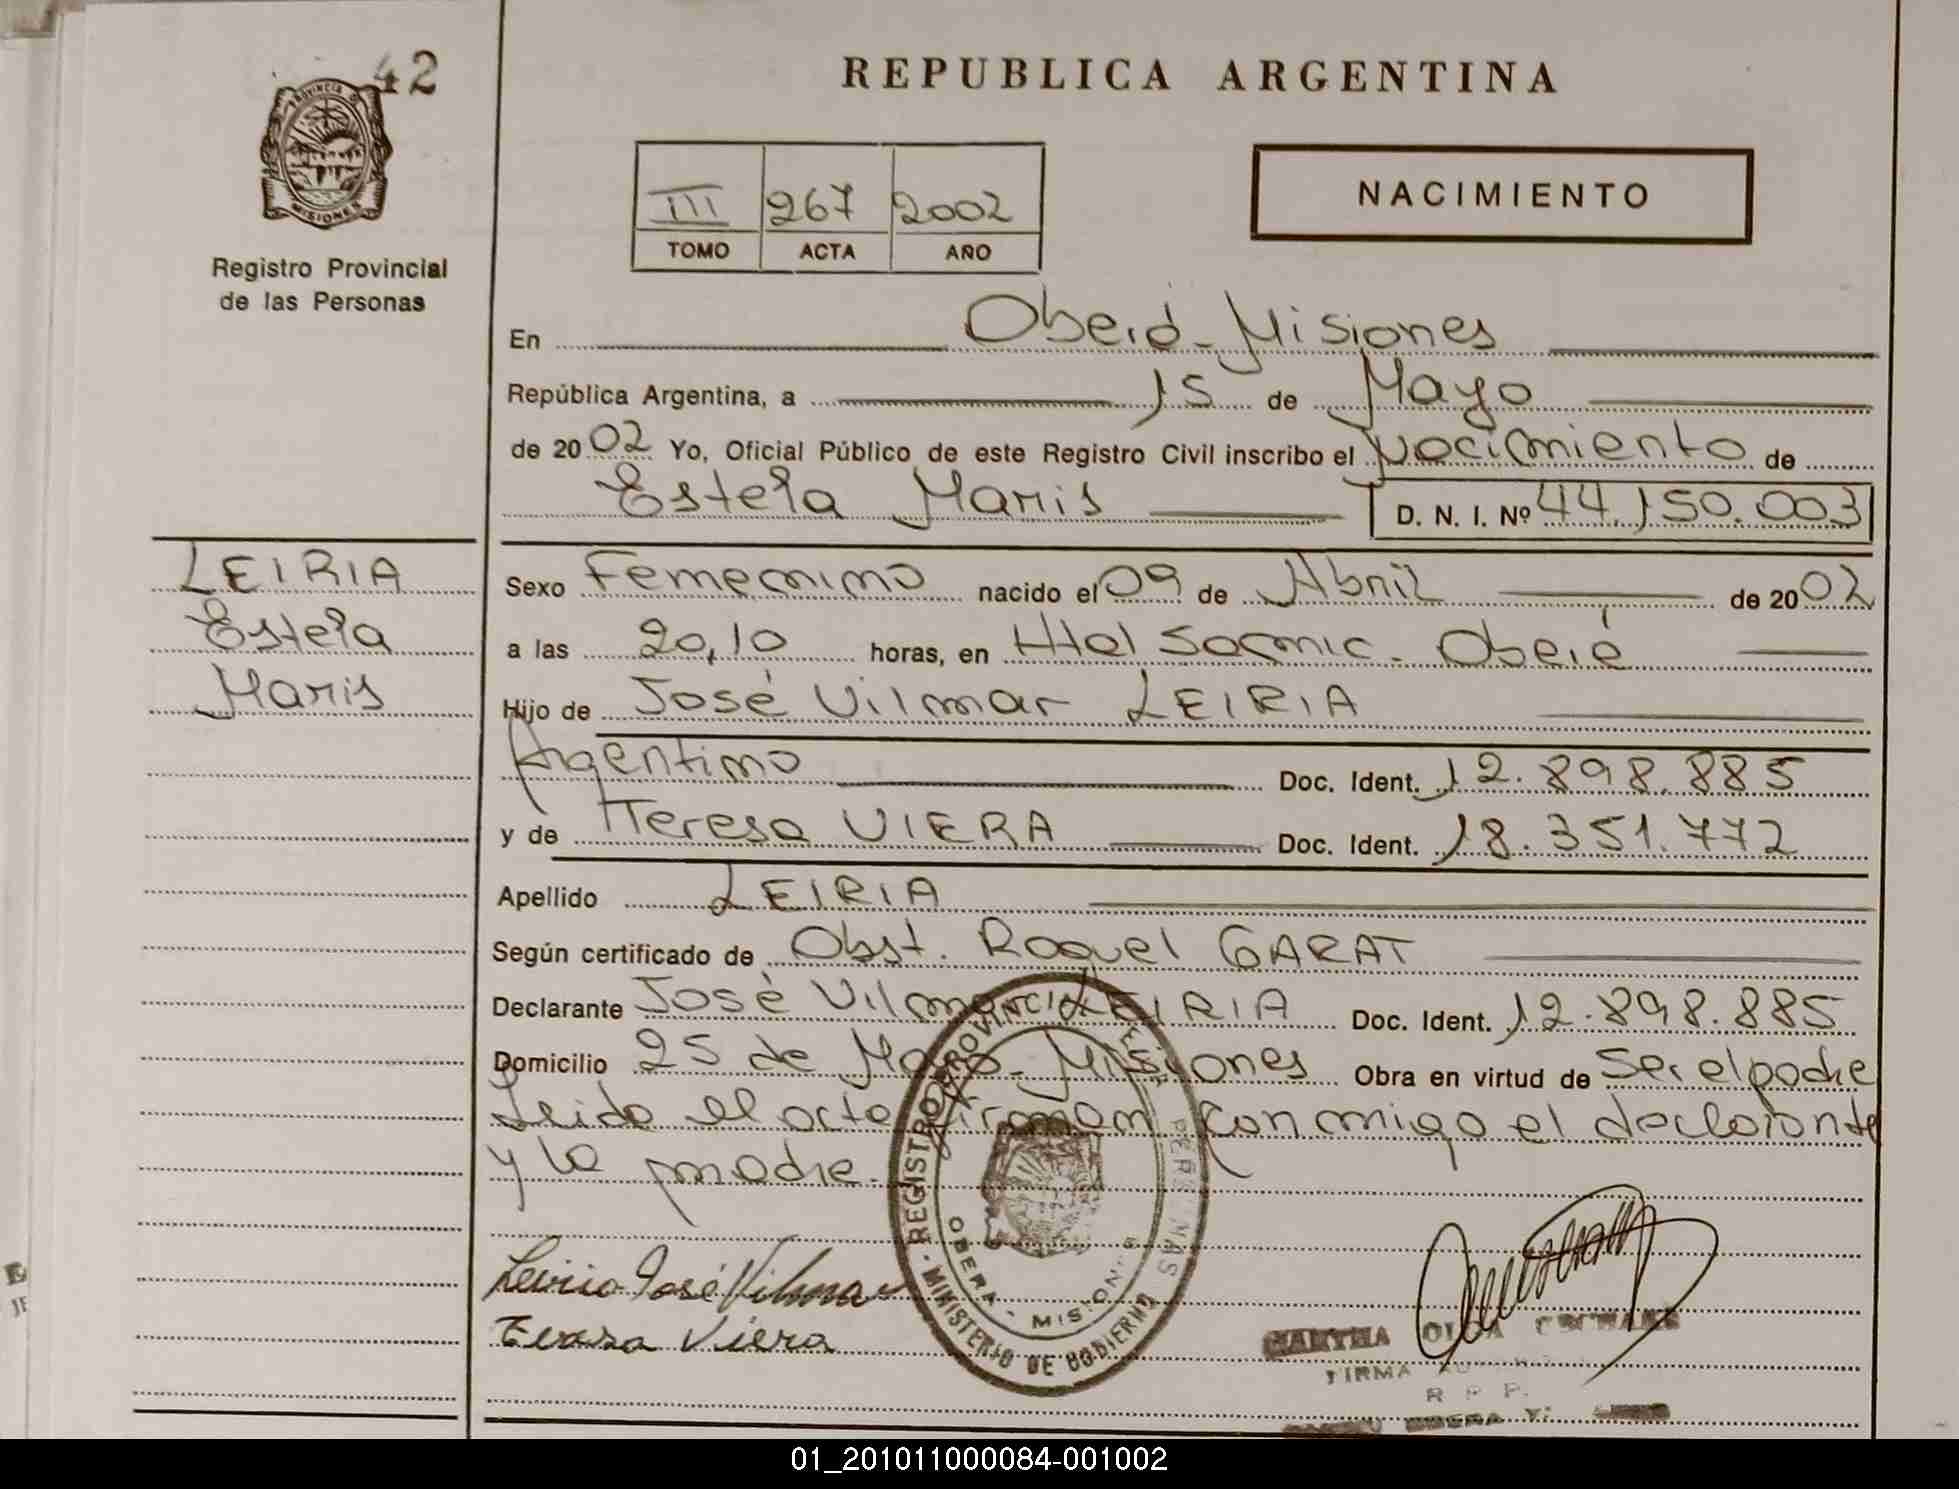 42
PROVINCIA DE
MISIONES
Registro Provincial
de las Personas
REPUBLICA ARGENTINA
III 267 2002
TOMO ACTA AÑO
NACIMIENTO
En Oberá - Misiones
República Argentina, a 15 de Mayo
de 20 02 Yo, Oficial Público de este Registro Civil inscribo el nacimiento de
Estela Maris D. N. I. Nº 44.150.003
LEIRIA
Estela
Maris
Sexo Femenino nacido el 09 de Abril de 20 02
a las 20,10 horas, en Htal Samic - Oberá
Hijo de José Vilmar LEIRIA
Argentino Doc. Ident. 12.898.885
y de Teresa VIERA Doc. Ident. 18.351.772
Apellido LEIRIA
Según certificado de Obst. Raquel GARAT
Declarante José Vilmar LEIRIA Doc. Ident. 12.898.885
Domicilio 25 de Mayo - Misiones Obra en virtud de ser el padre
Leido el acta firman conmigo el declarante
y la madre.
REGISTRO PROVINCIAL DE LAS PERSONAS
OBERA - MISIONES
MINISTERIO DE GOBIERNO
Leiria José Vilmar
Teresa Viera
MARTHA OLGA
FIRMA
R. P. P.
OBERA
01_201011000084-001002